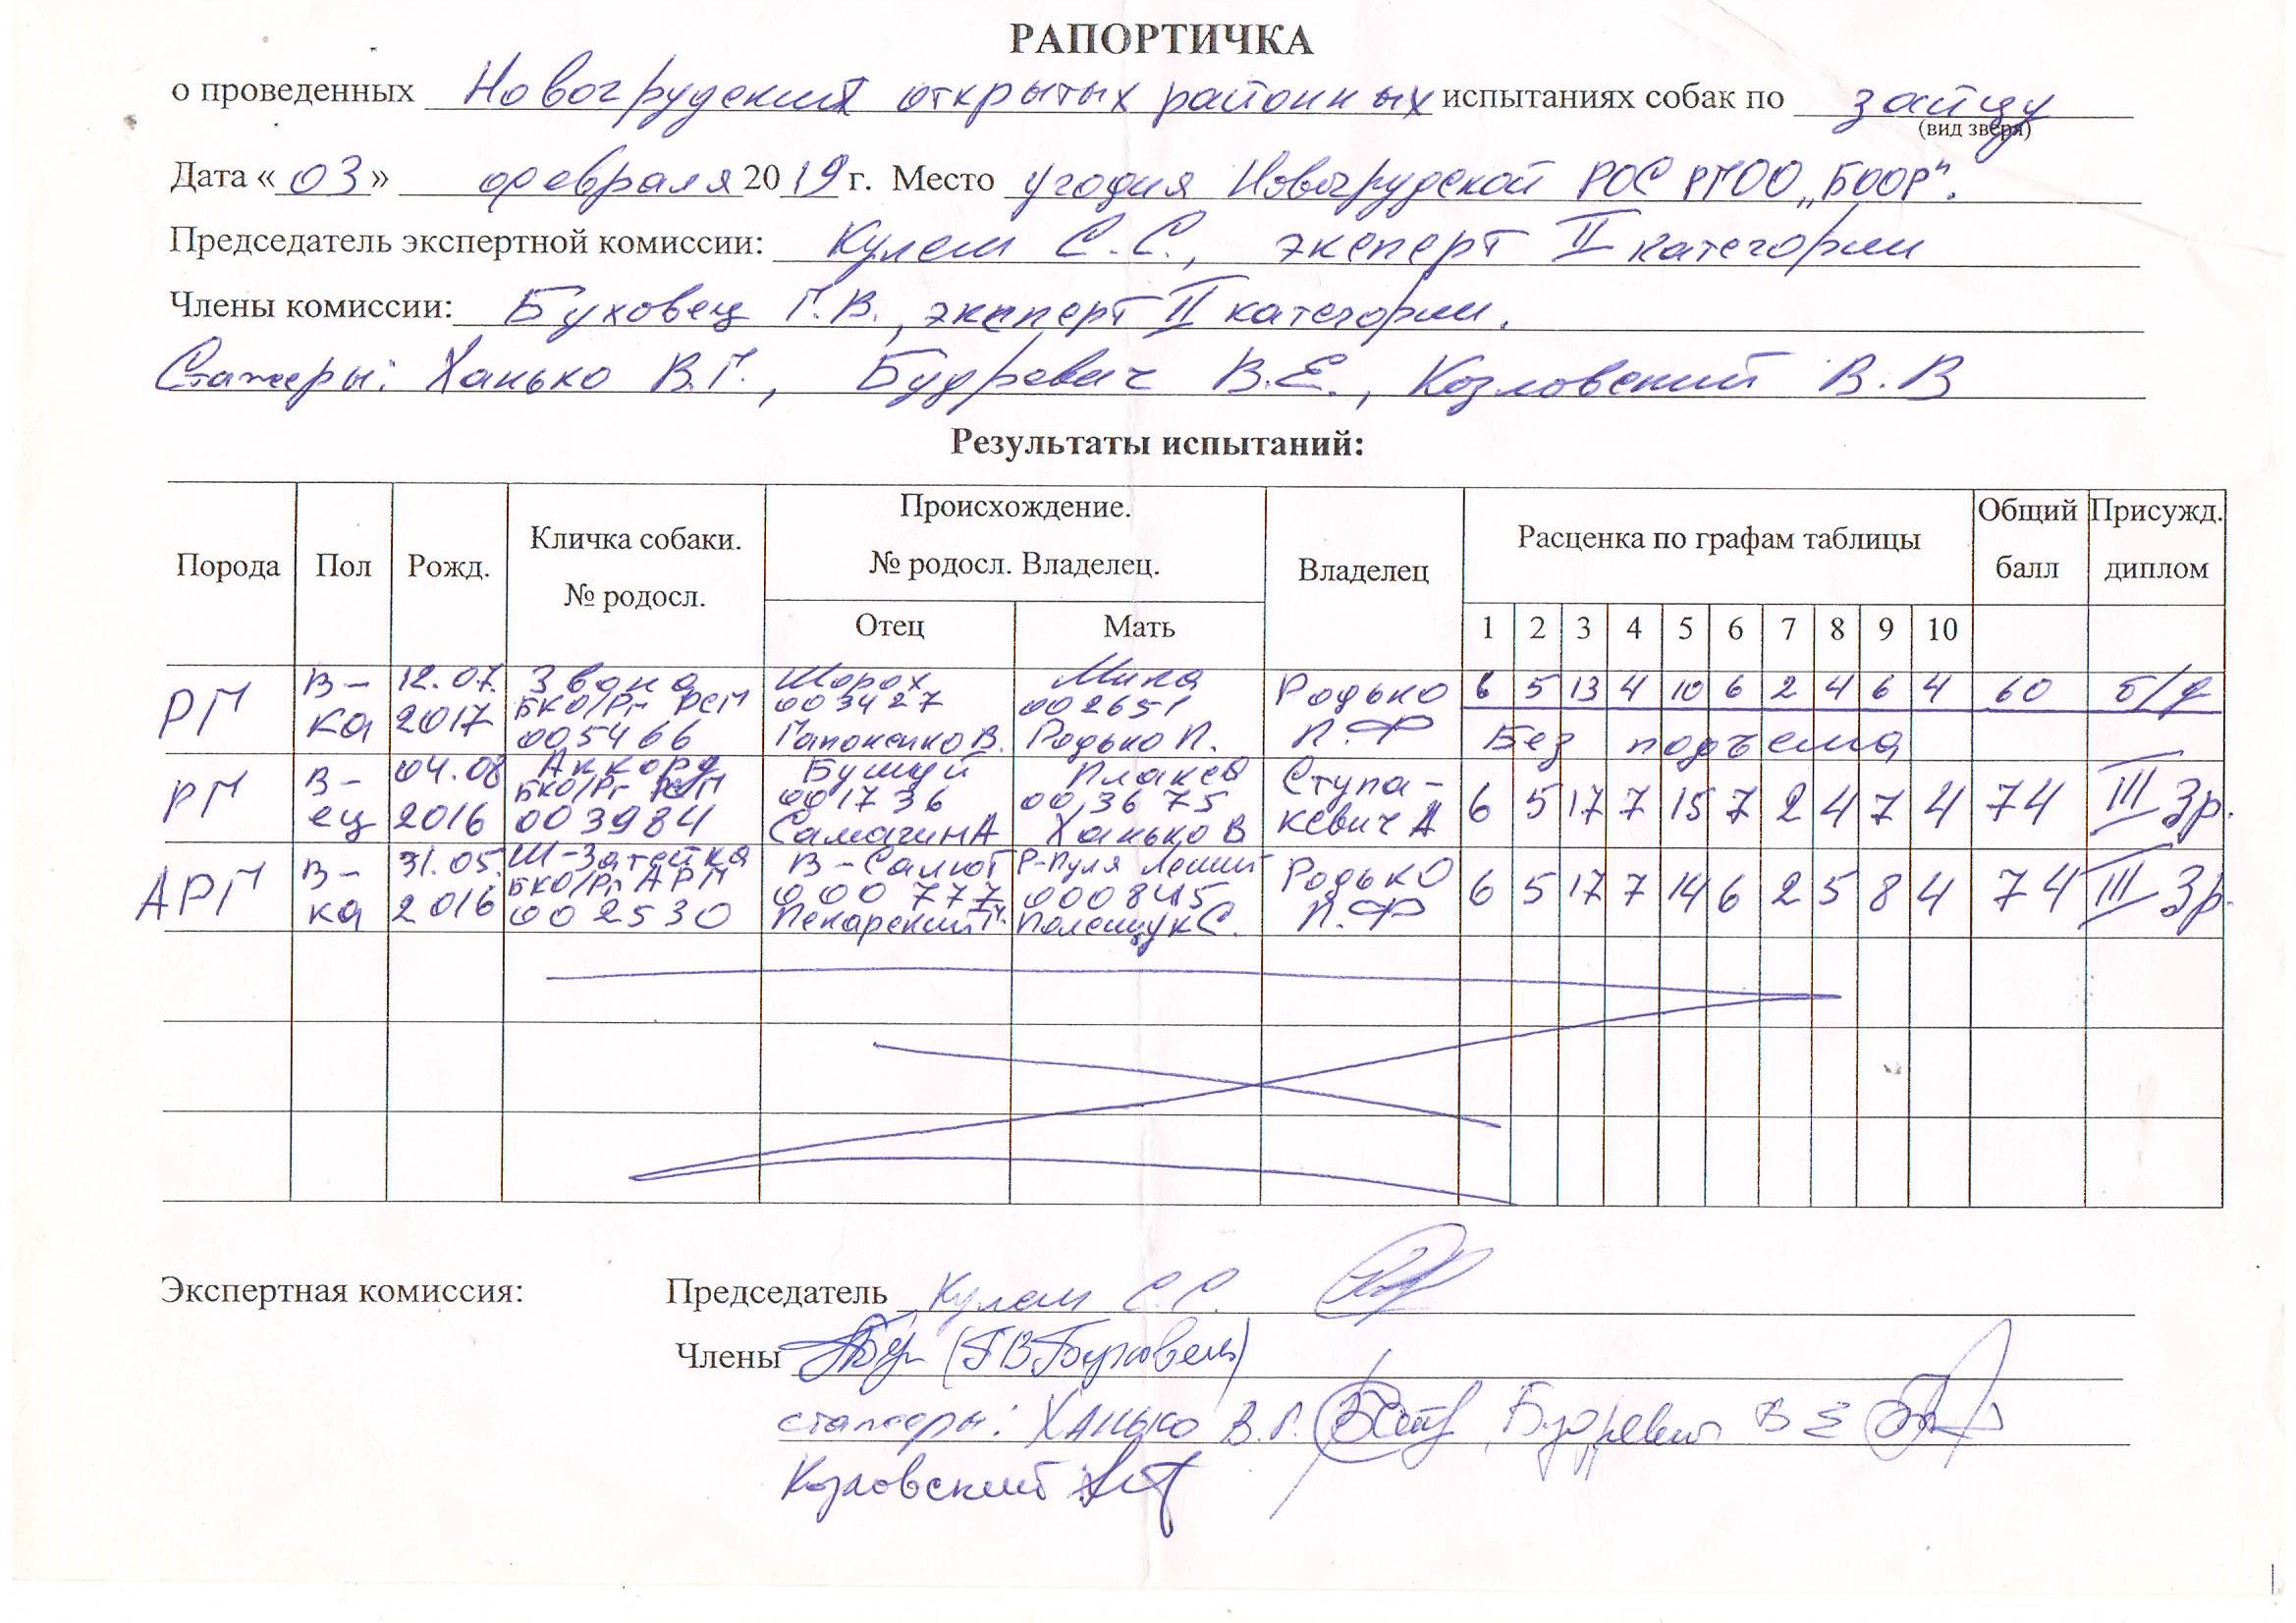 РАПОРТИЧКА
о проведенных Новогрудских открытых районных испытаниях собак по зайцу
(вид зверя)
Дата «03» февраля 2019 г. Место угодия Новогрудской РОС РГОО „БООР".
Председатель экспертной комиссии: Кулеш С.С., эксперт II категории
Члены комиссии: Буховец Г.В., эксперт II категории.
Стажеры: Ханько В.Г., Будревич В.Е., Козловский В.В
Результаты испытаний:
Порода Пол Рожд. Кличка собаки. № родосл. Происхождение. № родосл. Владелец. Владелец Расценка по графам таблицы Общий балл Присужд. диплом
Отец Мать 1 2 3 4 5 6 7 8 9 10
РГ В-ка 12.07. 2017 Звона БКО/Рг РСГ 005466 Шорох 003427 Гапоненко В. Мила 002651 Родько П. Родько П.Ф 6 5 13 4 10 6 2 4 6 4 60 б/д
Без подъема
РГ В-ец 04.08 2016 Аккорд БКО/Рг РСГ 003984 Бушуй 001736 Самагин А Плакса 003675 Ханько В Ступакевич А 6 5 17 7 15 7 2 4 7 4 74 III Зр.
АРГ В-ка 31.05. 2016 Ш-Затейка БКО/Рг АРГ 002530 В-Салют 000777 Пекарский Г. Р-Пуля Леший 000845 Полещук С. Родько П.Ф 6 5 17 7 14 6 2 5 8 4 74 III Зр.
Экспертная комиссия: Председатель Кулеш С.С.
Члены (Г.В.Буховец)
стажеры: Ханько В.Г. Будревич В Е
Козловский